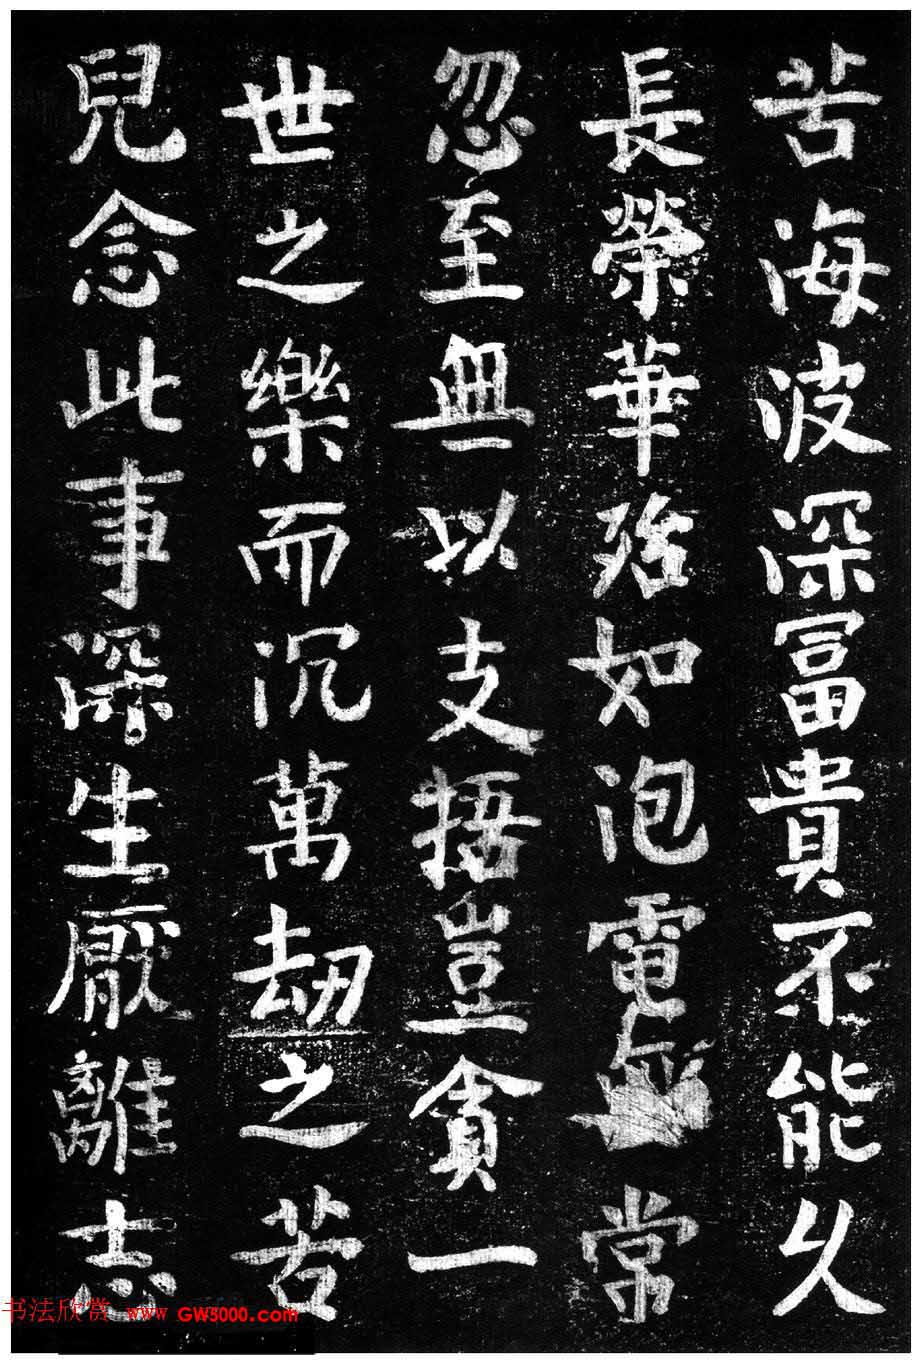 苦海波深冨貴不能久
長榮華殆如泡電無常
忽至無以支捂豈貪一
世之樂而沉萬劫之苦
兒念此事深生厭離志
书法欣赏 www.GW5000.com